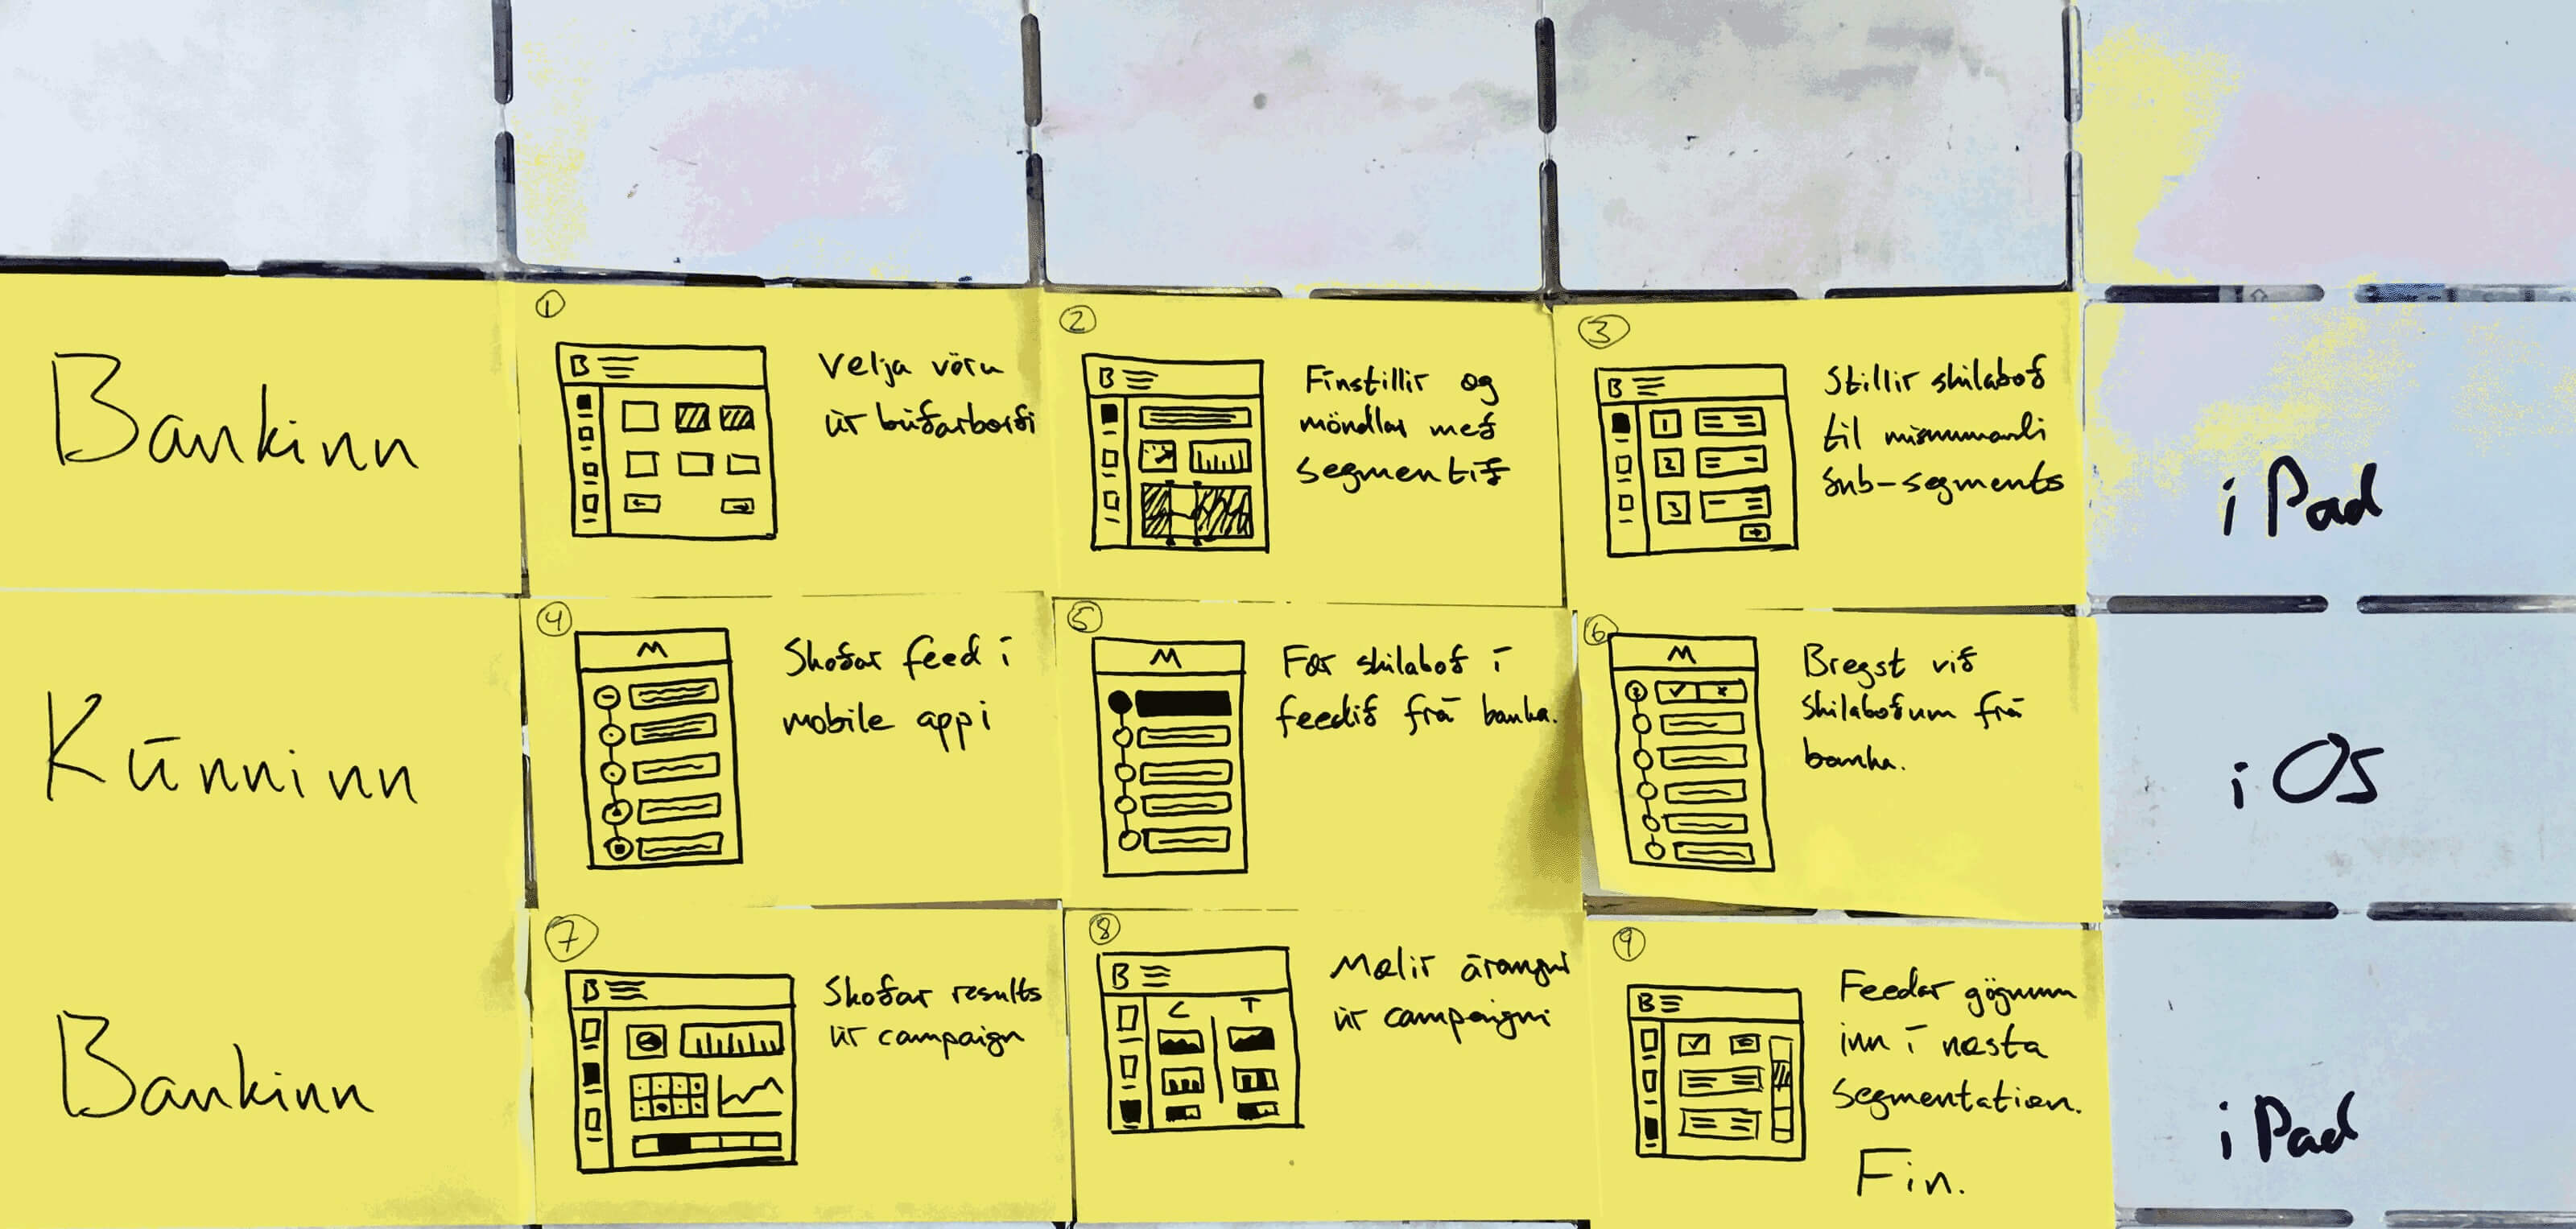 Bankinn
①
B
Velja vöru
úr búðarborði
②
B
Finstillir og
möndlar með
segmentið
③
B
1
2
3
Stillir skilaboð
til mismunandi
sub-segments
iPad
Kúnninn
④
M
Skoðar feed í
mobile appi
⑤
M
Fær skilaboð í
feedið frá banka.
⑥
M
Bregst við
skilaboðum frá
banka.
iOS
Bankinn
⑦
B
Skoðar results
úr campaign
⑧
B
C T
Mælir árangur
úr campaigni
⑨
B
Feedar gögnum
inn í næsta
segmentation.
Fin.
iPad